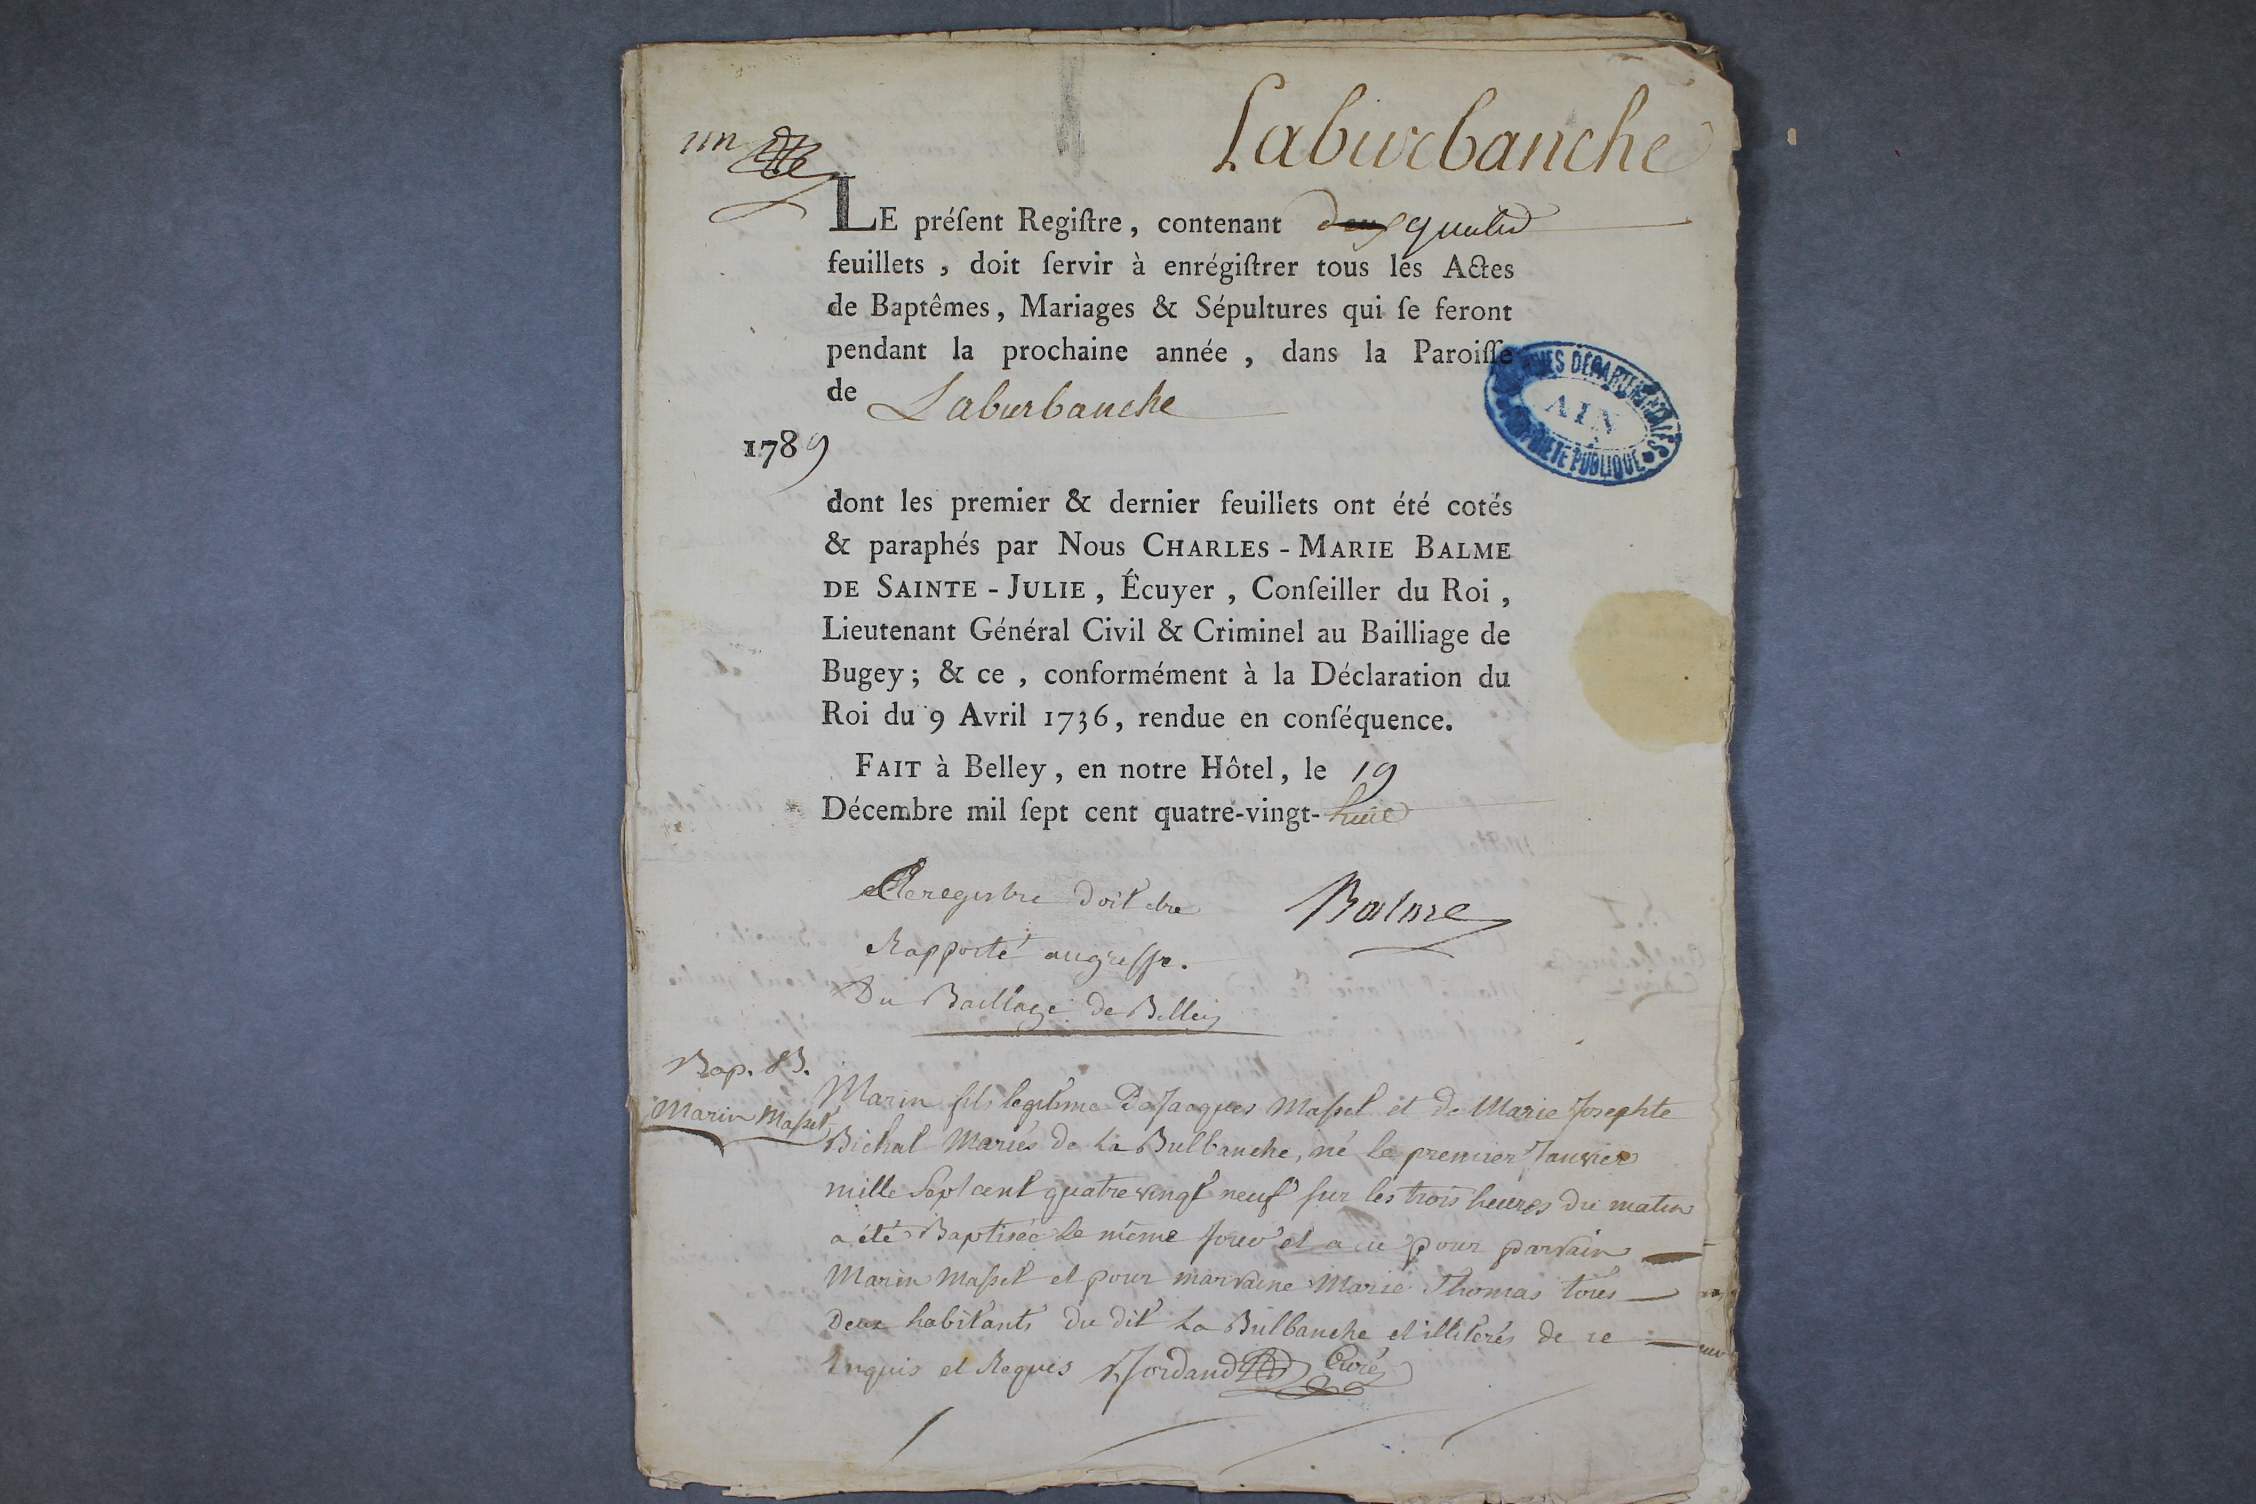 un
Laburbanche
LE préſent Regiſtre, contenant deux quatre
feuillets, doit ſervir à enrégiſtrer tous les Actes
de Baptêmes, Mariages & Sépultures qui ſe feront
pendant la prochaine année, dans la Paroiſſe
de Laburbanche
ARCHIVES DÉPARTEMENTALES
AIN
PROPRIÉTÉ PUBLIQUE
1789
dont les premier & dernier feuillets ont été cotés
& paraphés par Nous CHARLES-MARIE BALME
DE SAINTE-JULIE, Écuyer, Conſeiller du Roi,
Lieutenant Général Civil & Criminel au Bailliage de
Bugey; & ce, conformément à la Déclaration du
Roi du 9 Avril 1736, rendue en conſéquence.
FAIT à Belley, en notre Hôtel, le 19
Décembre mil ſept cent quatre-vingt-huit
Ce registre doit etre
Balme
Rapporté au greffe.
Du Bailliage de Belley
Bap. B.
Marin Maſſet
Marin fils legitime De Jacques Maſſet et de Marie Josephte
Bichat Mariés de La Bulbanche, né le premier Janvier
mille Sept cent quatre vingt neuf ſur les trois heures du matin
a été Baptisée le même jour et a eu pour parrain
Marin Maſſet et pour marraine Marie Thomas tous
Deux habitants du dit La Bulbanche et illiterés de ce
Enquis et Requis Jordand Curé